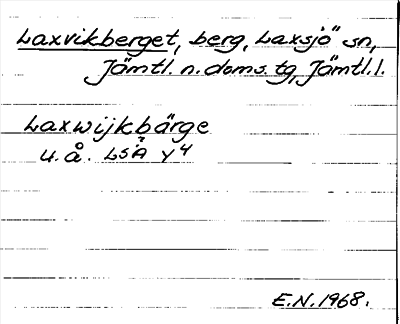 Laxvikberget, berg, Laxsjö sn,
Jämtl. n. doms. tg, Jämtl. l.
Laxwijkbärge
u. å. LSA Y4
E.N. 1968.